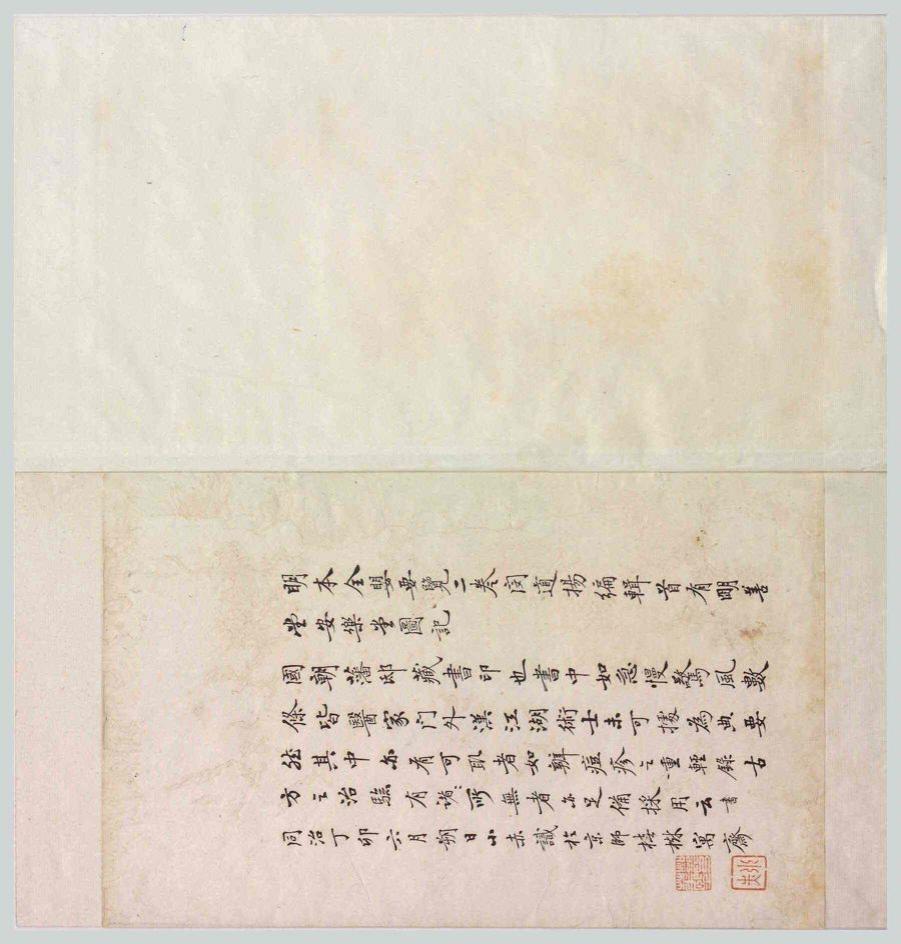 明本全嬰要覽二卷閔道揚編輯首有明善
堂安樂堂圖記
國朝藩邸藏書印也書中如急慢驚風數
條皆醫家門外漢江湖術士未可據為典要
然其中亦有可取者如辨痘疹之重輕錄古
方之治驗有諸所無者亦足備採用云書
同治丁卯六月朔日小赤識於京師椿林寓齋